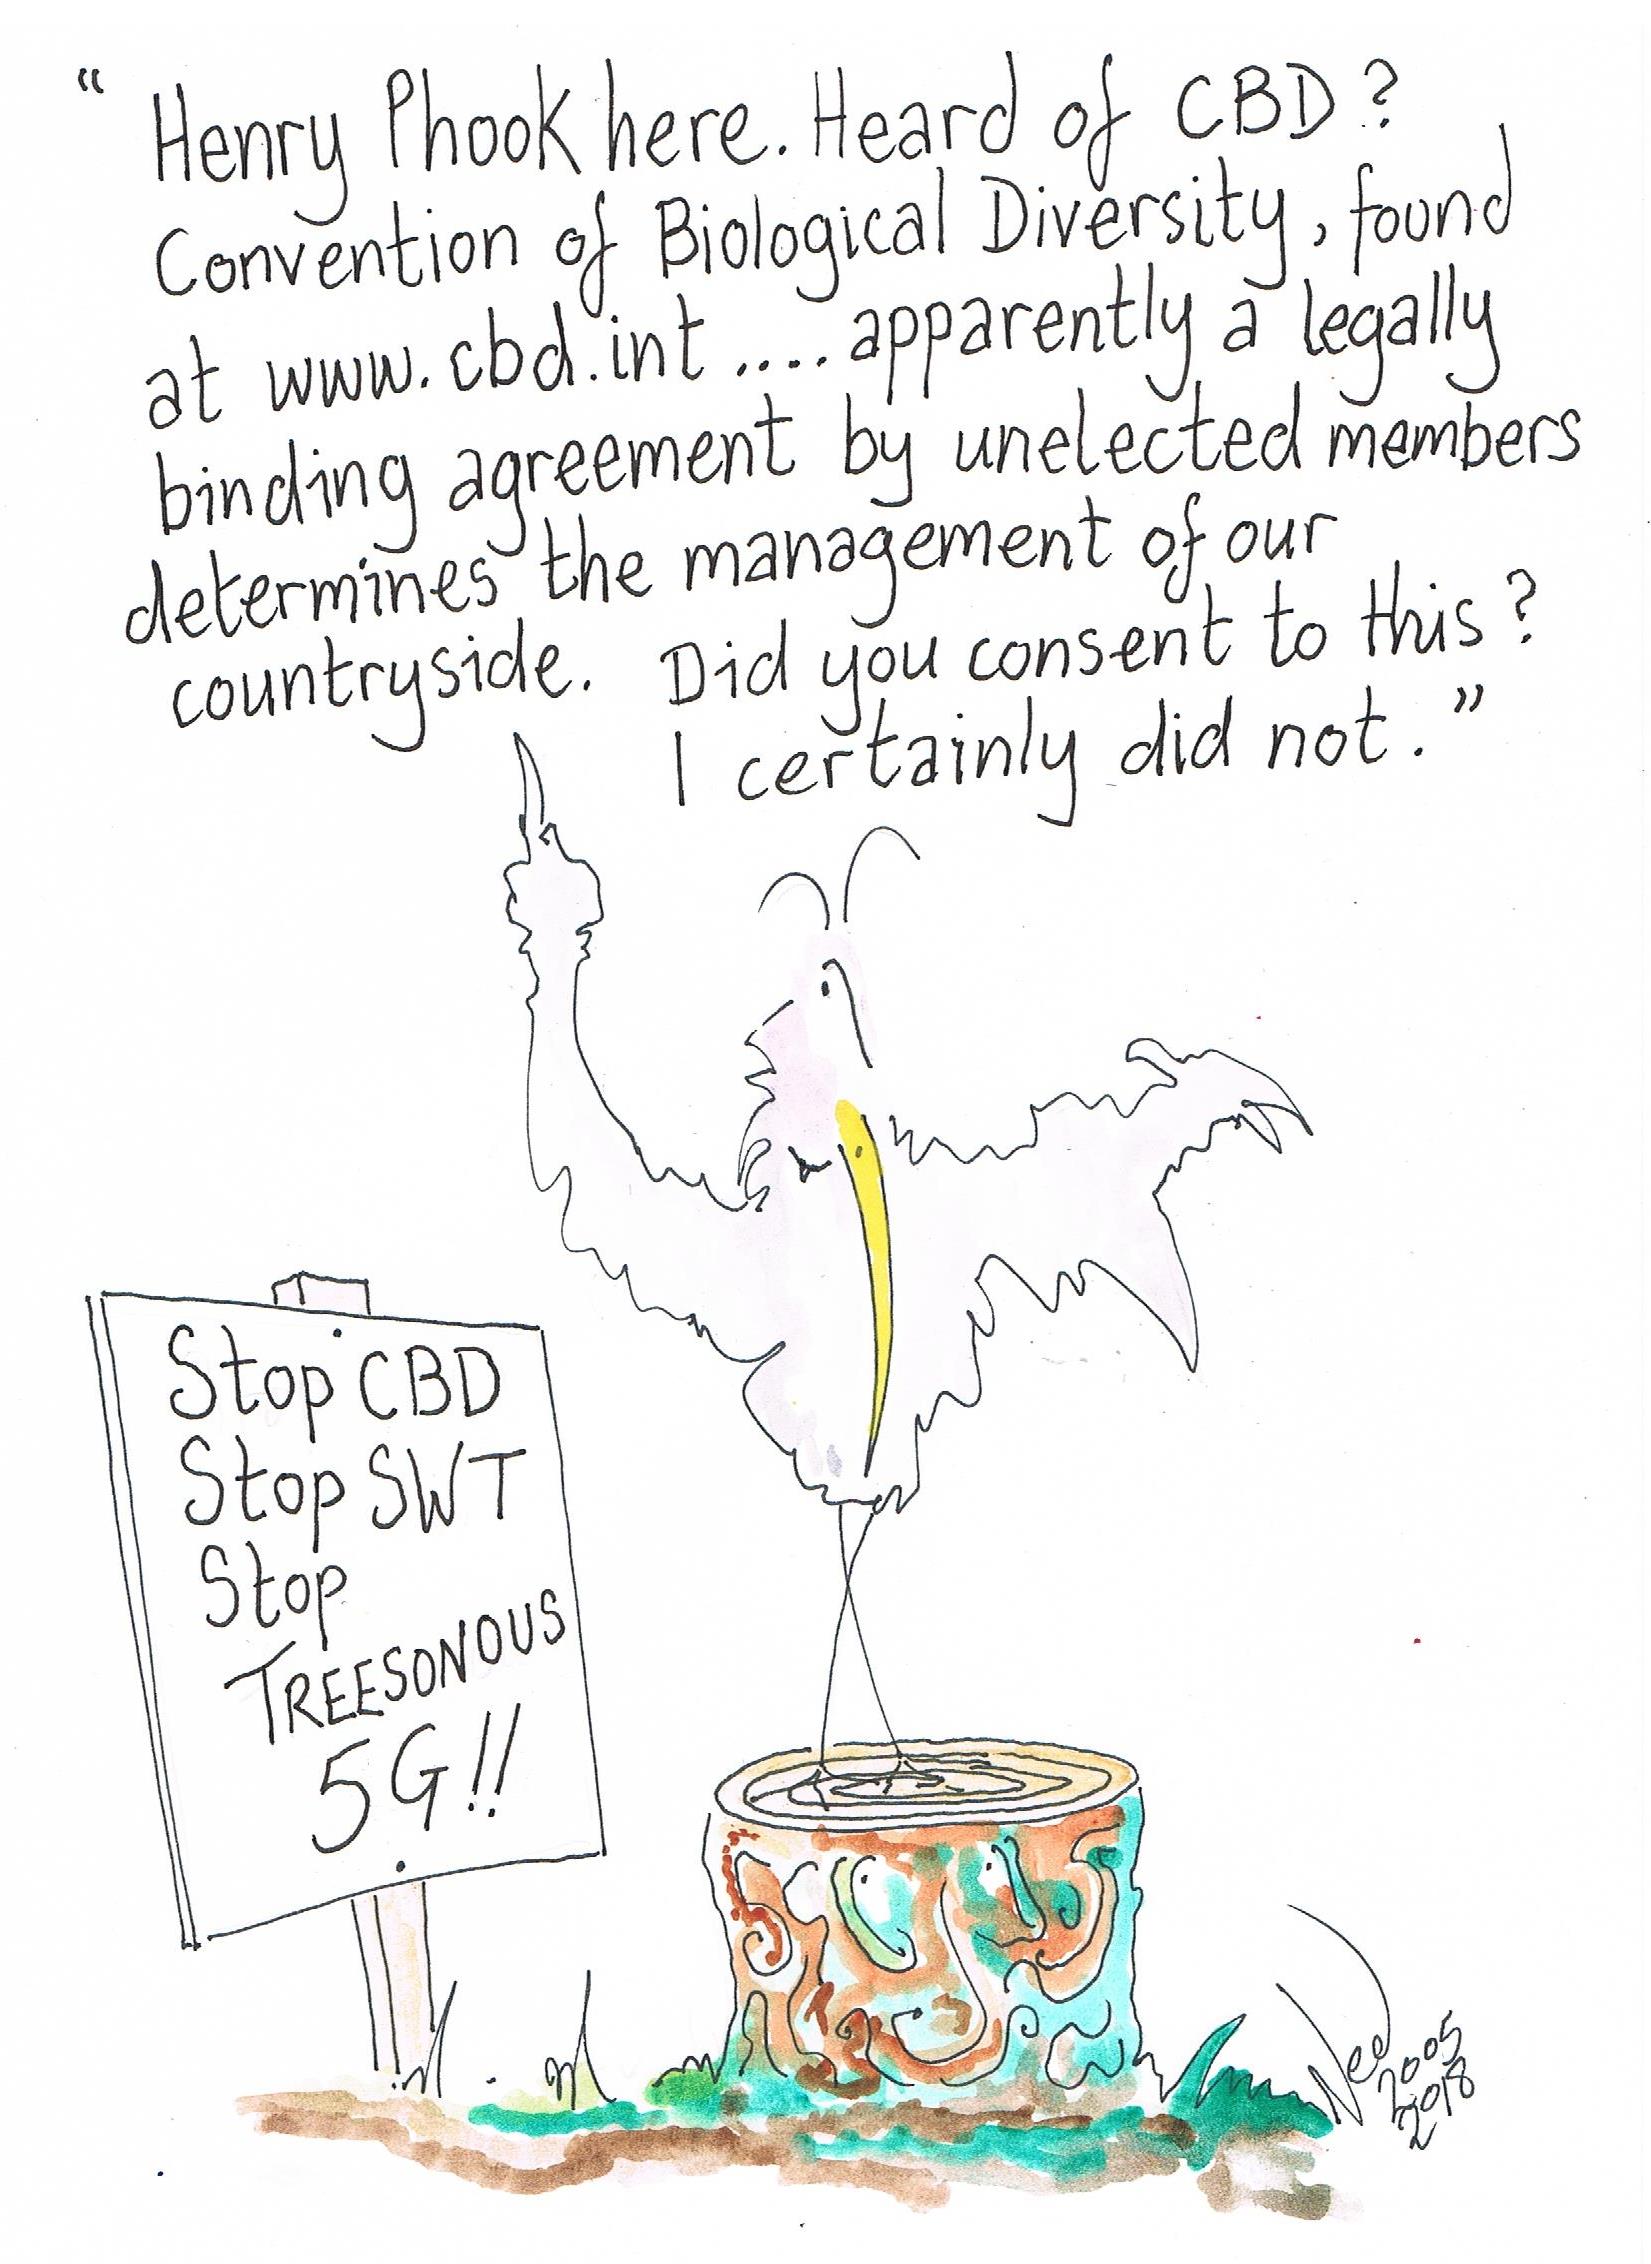 “ Henry Phook here. Heard of CBD?
Convention of Biological Diversity, found
at www.cbd.int .... apparently a legally
binding agreement by unelected members
determines the management of our
countryside. Did you consent to this?
I certainly did not.”
Stop CBD
Stop SWT
Stop
TREESONOUS
5G!!
2005
2018